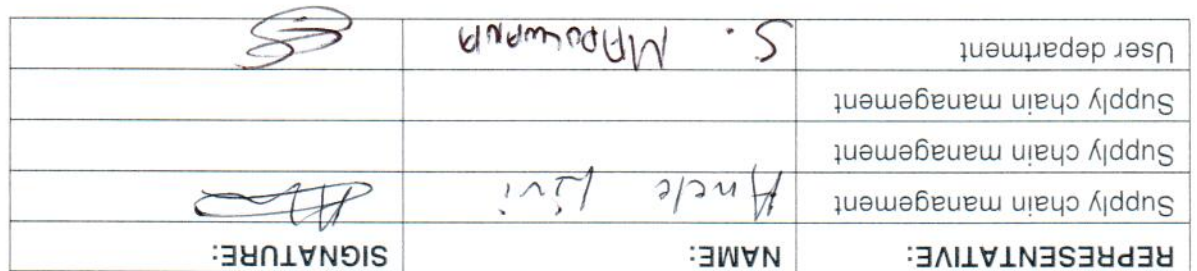 REPRESENTATIVE: NAME: SIGNATURE:
Supply chain management Anele Livi
Supply chain management
Supply chain management
User department S.